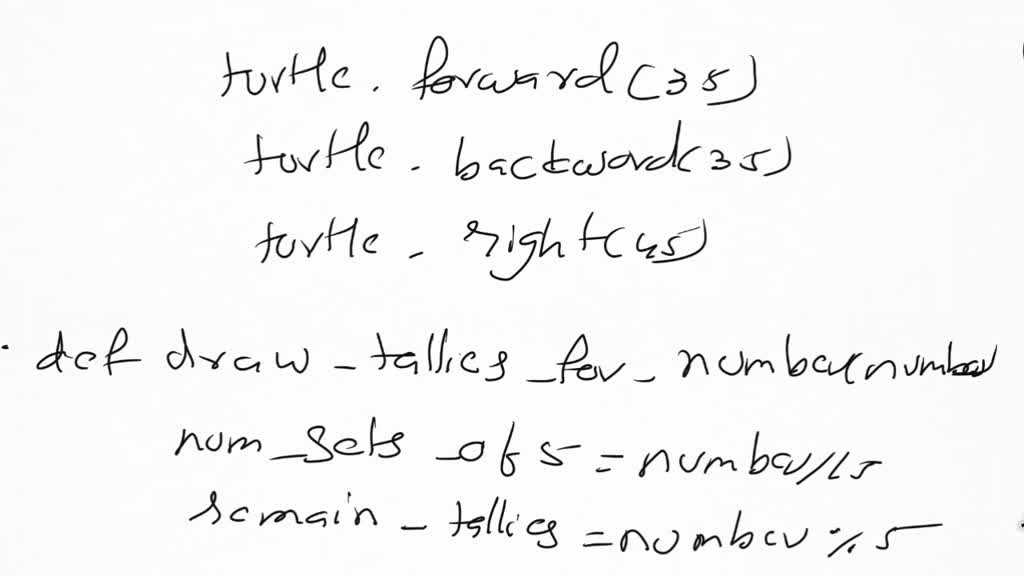 turtle. forward(35)
turtle. backward(35)
turtle. right(45)
def draw_tallies_for_number(number
num_sets_of 5 = number//5
remain_tallies = number % 5